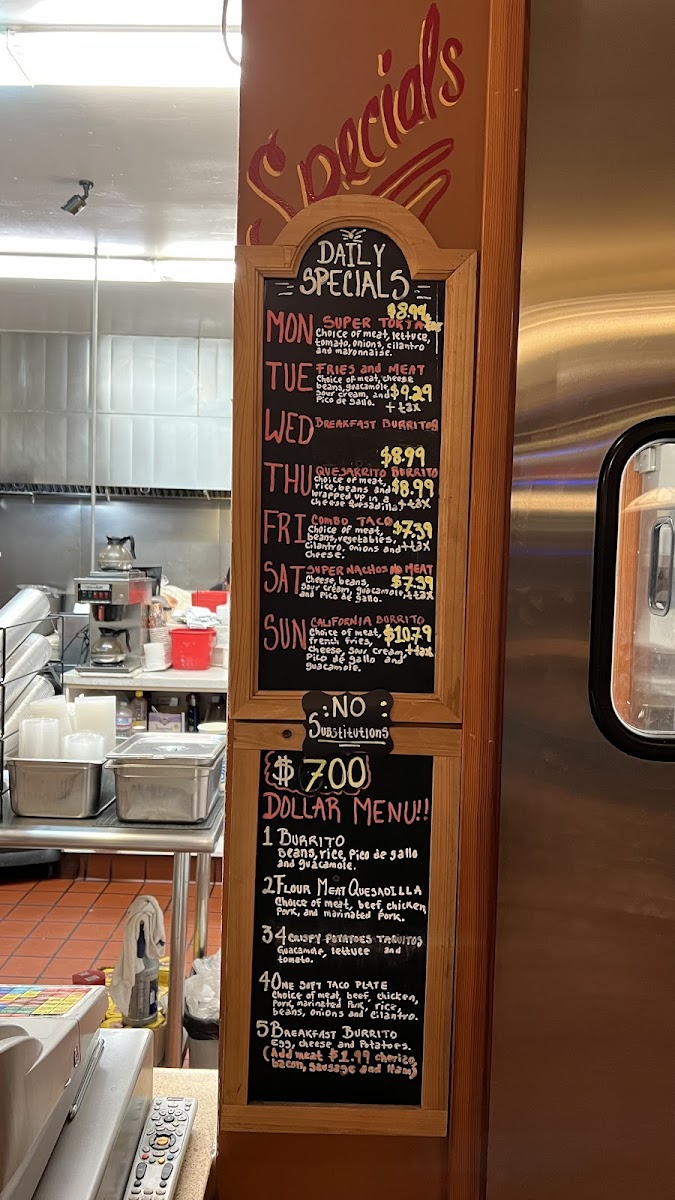 Specials
DAILY
SPECIALS
MON SUPER TORTA $8.99
tax
Choice of meat, lettuce,
tomato, onions, cilantro
and mayonnaise.
TUE FRIES and MEAT
Choice of meat, cheese
beans, guacamole,
sour cream, and $9.29
Pico de gallo. + tax
WED BREAKFAST BURRITOS
$8.99
THU QUESARRITO BURRITO
choice of meat,
rice, beans and $8.99
wrapped up in a
cheese quesadilla + tax
FRI COMBO TACO
Choice of meat, $7.39
beans, vegetables,
Cilantro, onions and + tax
cheese.
SAT SUPER NACHOS NO MEAT
Cheese, beans, $7.39
sour cream, guacamole, + tax
and Pico de gallo.
SUN CALIFORNIA BURRITO
Choice of meat, $10.79
french fries,
cheese, sour cream, + tax
Pico de gallo and
guacamole.
NO
Substitutions
$7.00
DOLLAR MENU!!
1 BURRITO
Beans, rice, Pico de gallo
and guacamole.
2 FLOUR MEAT QUESADILLA
Choice of meat, beef, chicken,
Pork, and marinated Pork.
3 4 CRISPY POTATOES TAQUITOS
Guacamole, lettuce and
tomato.
4 ONE SOFT TACO PLATE
Choice of meat, beef, chicken,
Pork, marinated Pork, rice,
beans, onions and cilantro.
5 BREAKFAST BURRITO
Egg, cheese and Potatoes.
(Add meat $1.99 chorizo,
bacon, sausage and Ham)